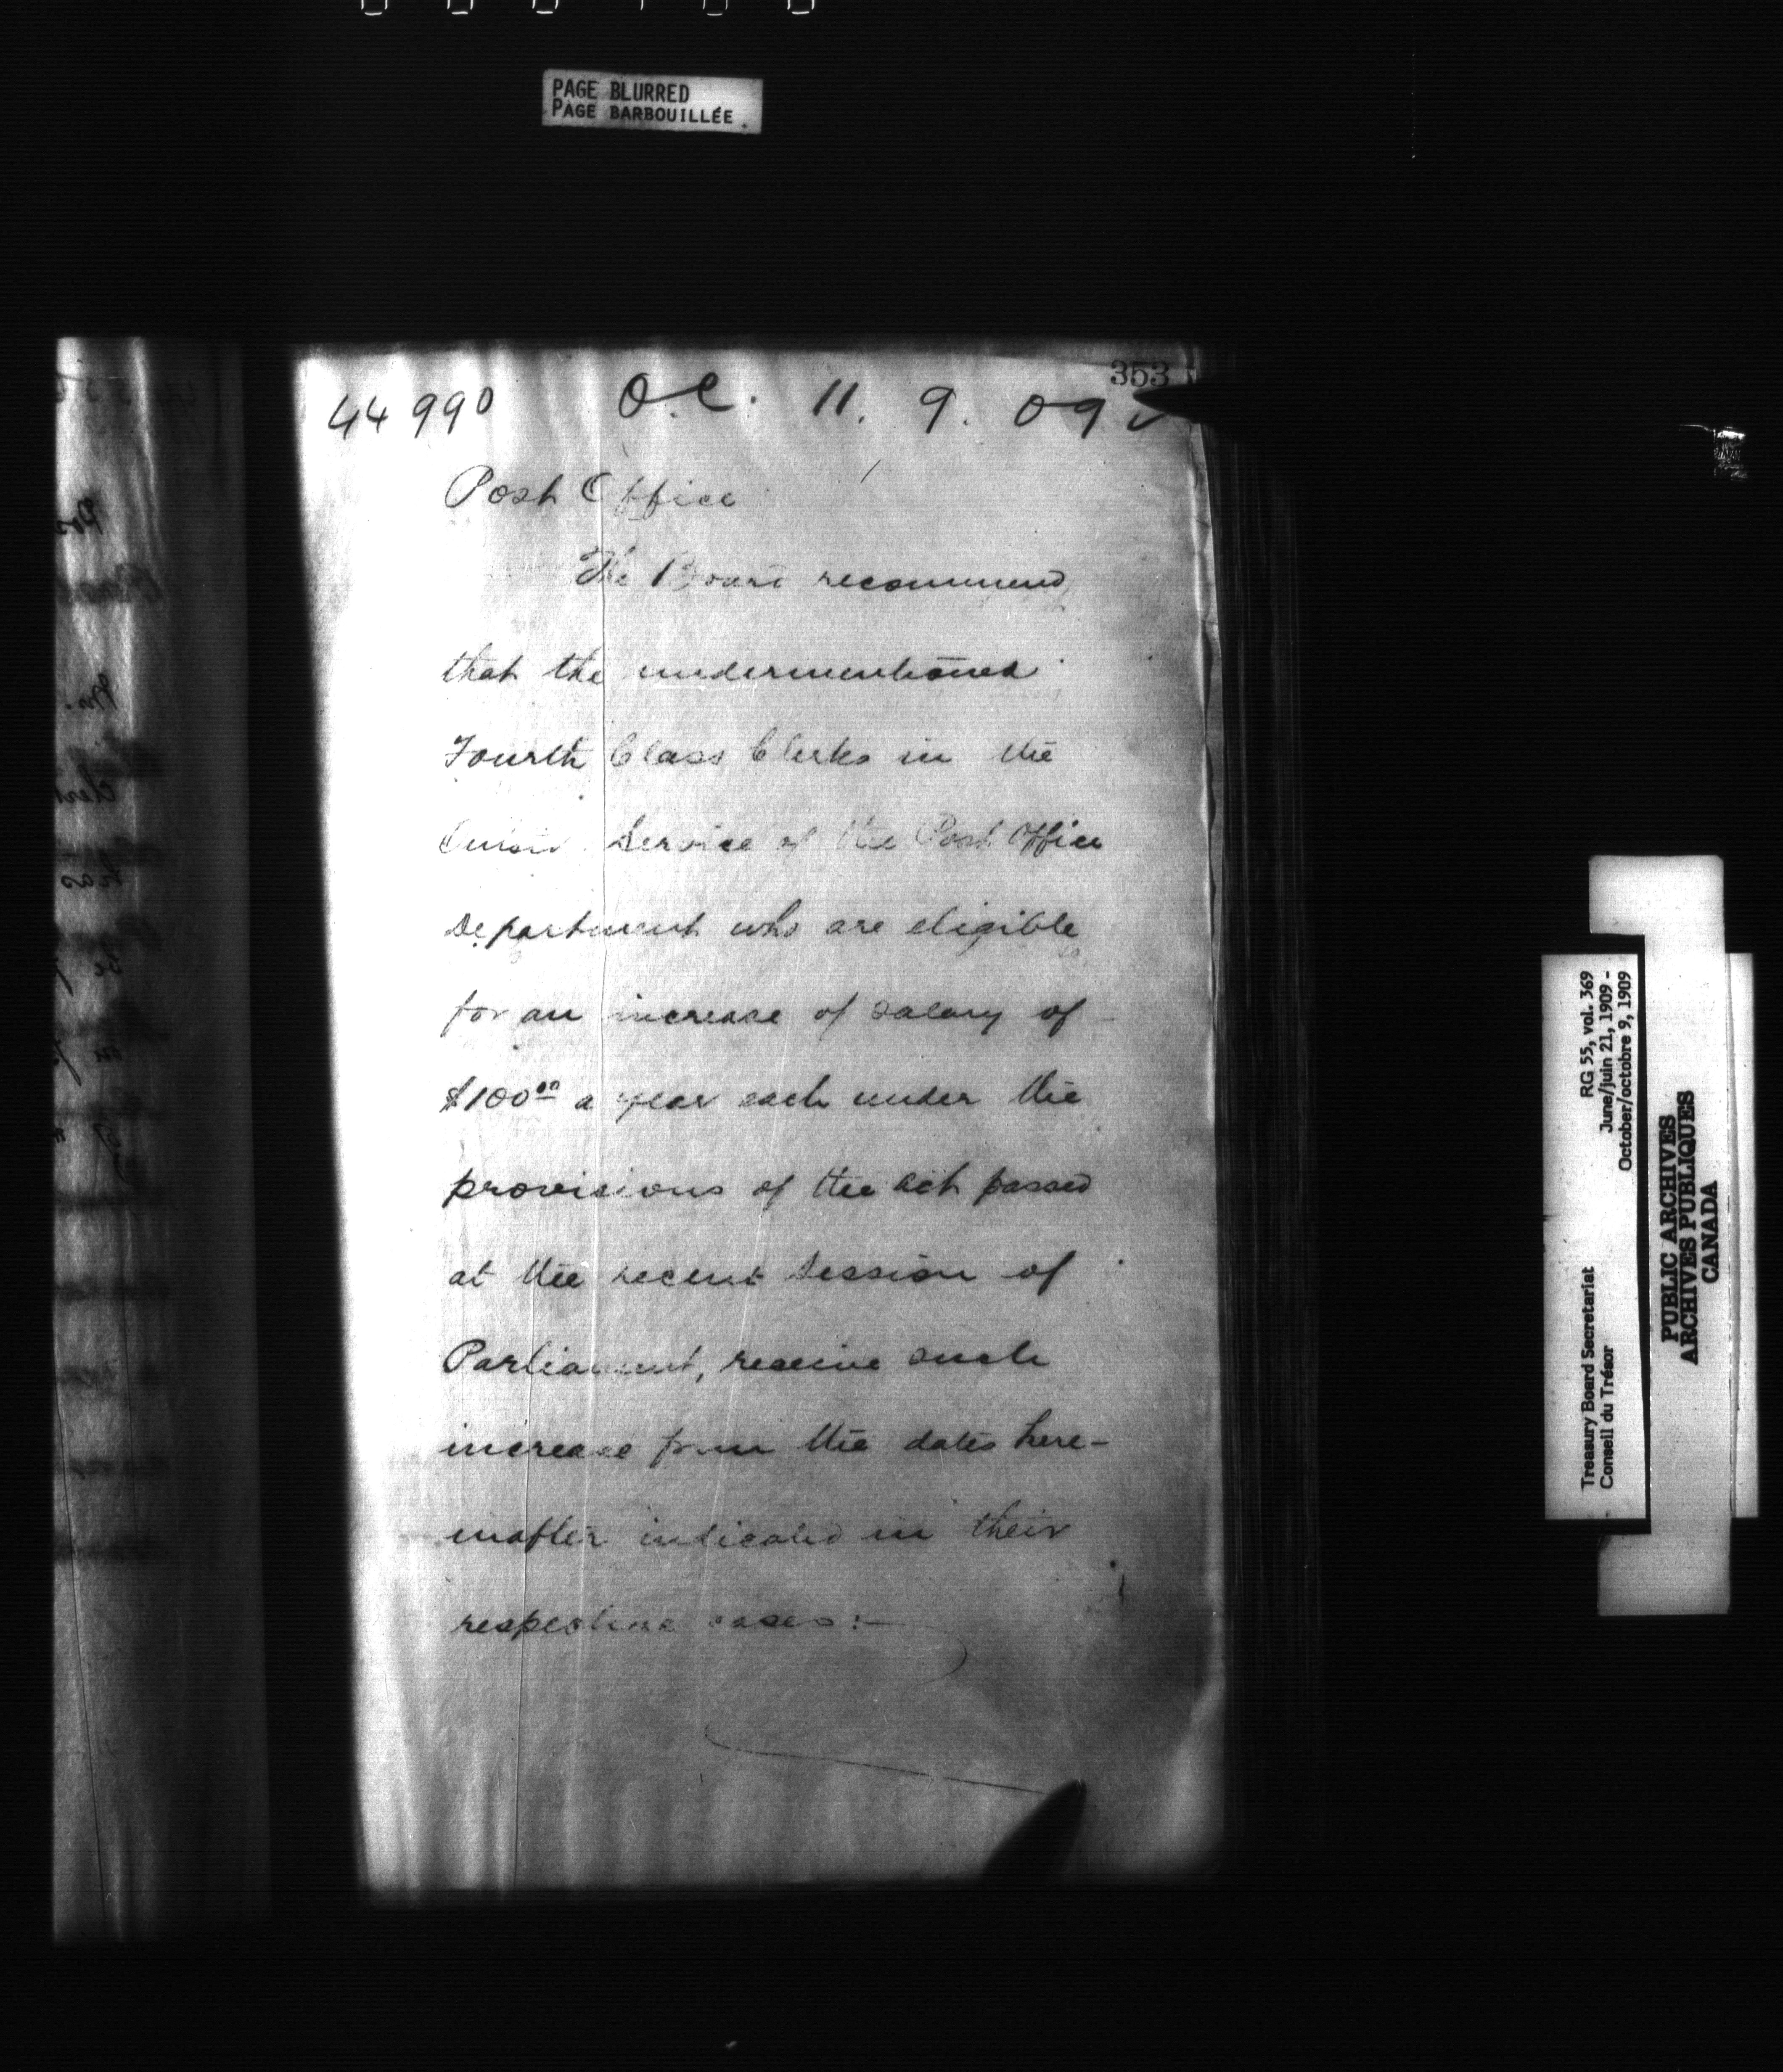 PAGE BLURRED
PAGE BARBOUILLÉE
353
44990 O.C. 11. 9. 09
Post Office
The Board recommend
that the undermentioned
Fourth Class Clerks in the
Outside Service of the Post Office
Department who are eligible
for an increase of salary of
$100⁰⁰ a year each under the
provisions of the Act passed
at the recent Session of
Parliament, receive such
increase from the dates here-
inafter indicated in their
respective cases:—
RG 55, vol. 369
June/juin 21, 1909 -
October/octobre 9, 1909
Treasury Board Secretariat
Conseil du Trésor
PUBLIC ARCHIVES
ARCHIVES PUBLIQUES
CANADA